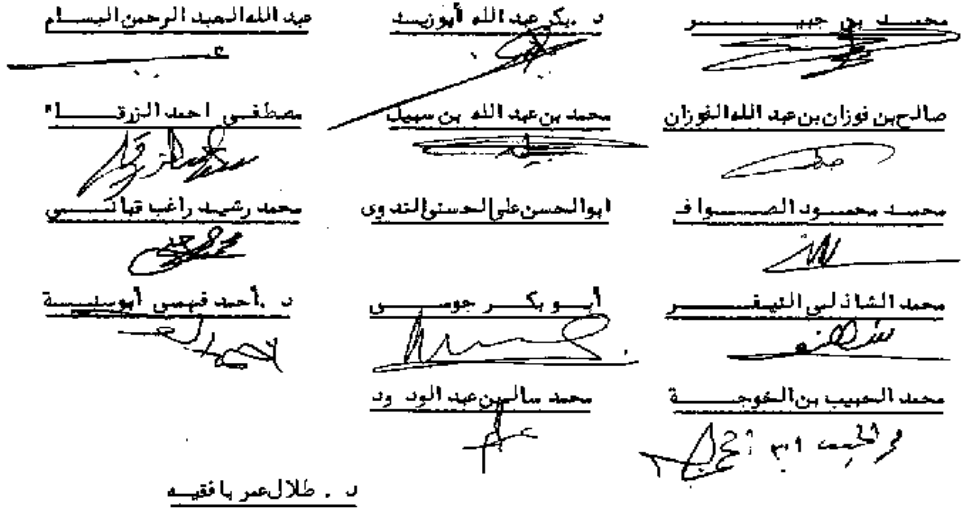 محمد بن جبير د . بكر عبد الله أبوزيد عبد الله العبد الرحمن البسام
صالح بن فوزان بن عبد الله الفوزان محمد بن عبد الله بن سبيل مصطفى احمد الزرقاء
محمد محمود الصواف ابوالحسن على الحسنى الندوى محمد رشيد راغب قبانى
محمد الشاذلى النيفر أبو بكر جومى د . أحمد فهمى أبوسنة
محمد الحبيب بن الخوجة محمد سالم بن عبد الودود
محمد الحبيب ابن الخوجة
د . طلال عمر بافقيه